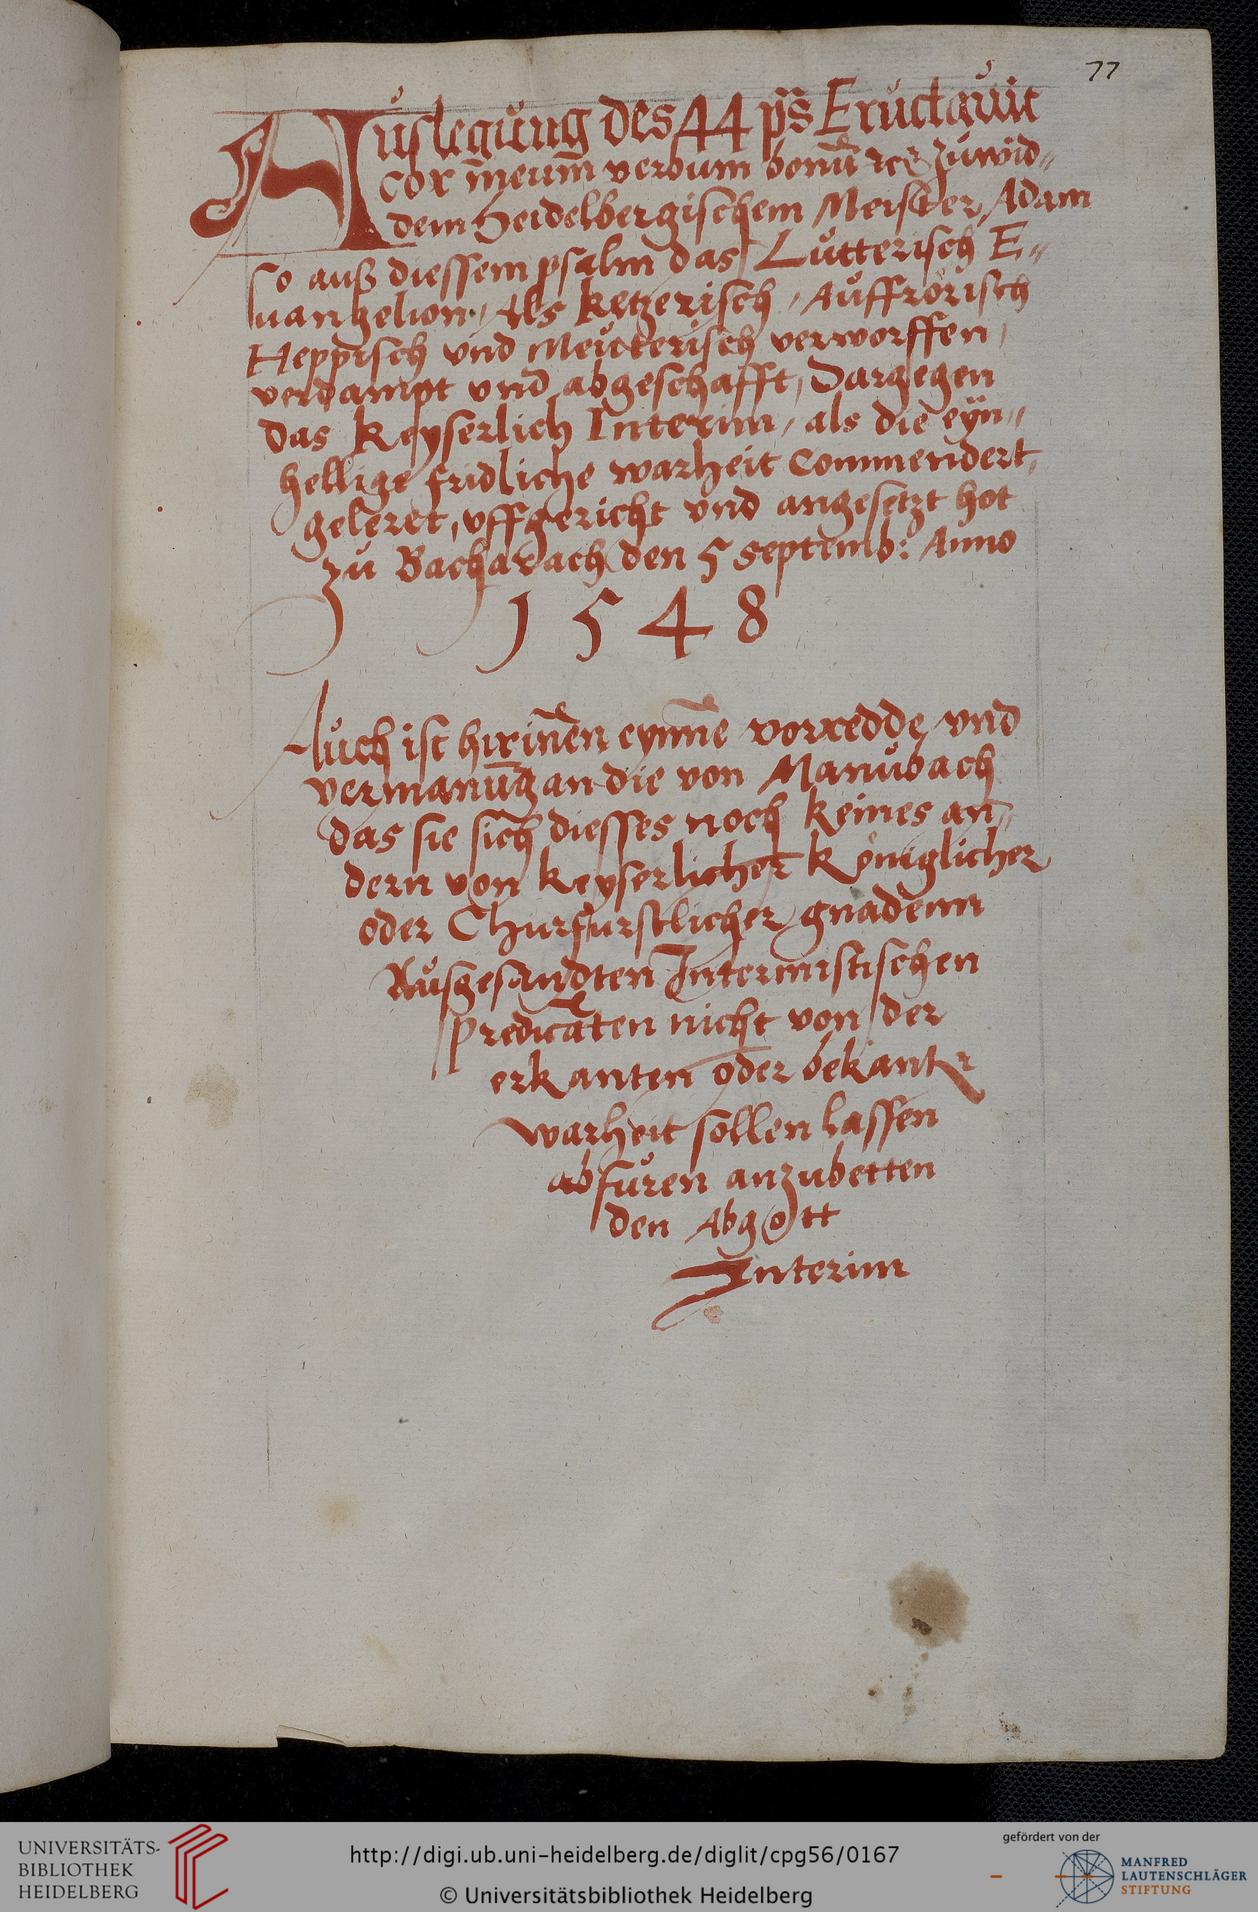 77
Auslegung des 44 ps Eructauit
cor meum verbum bonū rc zuwid„
dem Heidelbergischem Meister Adam
so auß diessem psalm das Lutterisch E„
uangelion, Als ketzerisch, Auffrörisch
Heppisch vnd Meuterisch verworffen,
verdampt vnd abgeschafft, Dargegen
das keyserlich Interim, als die eyn„
hellige fridliche warheit Commendert,
geleret, vffgericht vnd angesetzt hot
zu Bacharach den 5 septemb: Anno
1548
Auch ist hirinnen eynne vorredde vnd
vermanung an die von Manubach
das sie sich diesses noch keines an„
dern von keyserlicher Königlicher
oder Churfurstlicher gnadenn
Ausgesandten Intermistischen
predicāten nicht von der
erkanten oder bekanter
warheit sollen lassen
abfuren anzubetten
den Abgott
Interim
UNIVERSITÄTS-
BIBLIOTHEK
HEIDELBERG
http://digi.ub.uni-heidelberg.de/diglit/cpg56/0167
© Universitätsbibliothek Heidelberg
gefördert von der
MANFRED
LAUTENSCHLÄGER
STIFTUNG